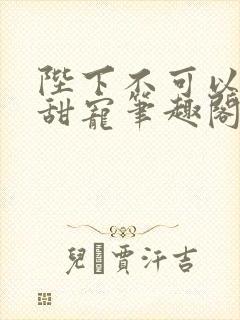 陛下不可以
甜寵筆趣閣
兒賈汗吉